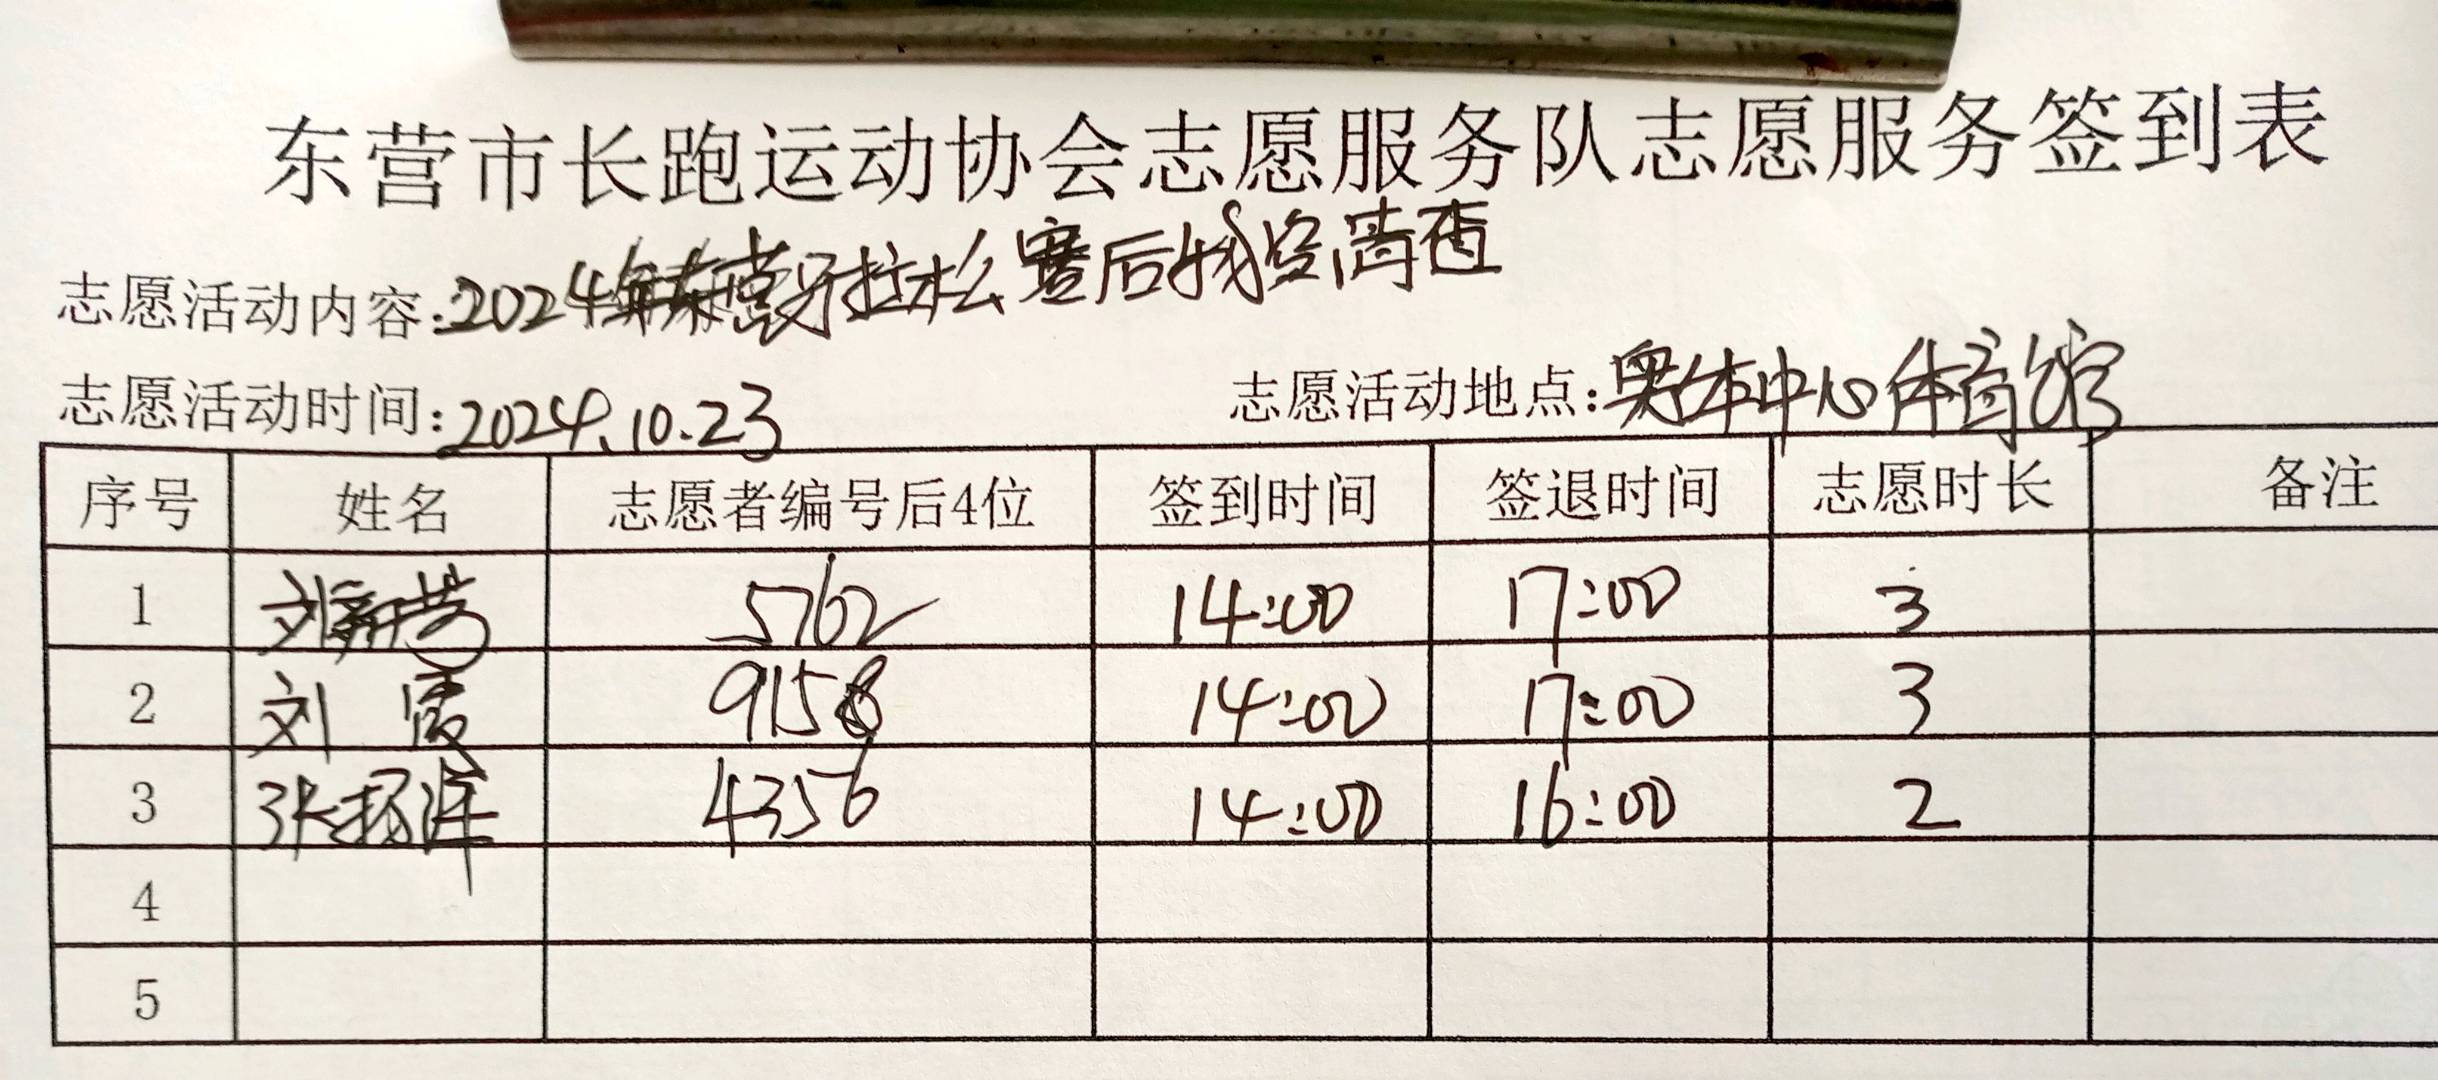 东营市长跑运动协会志愿服务队志愿服务签到表
志愿活动内容:2024年东营马拉松赛后物资清查
志愿活动时间:2024.10.23 志愿活动地点:奥体中心体育馆
序号 姓名 志愿者编号后4位 签到时间 签退时间 志愿时长 备注
1 刘新芳 5762 14:00 17:00 3
2 刘霞 9158 14:00 17:00 3
3 张扬 4356 14:00 16:00 2
4
5